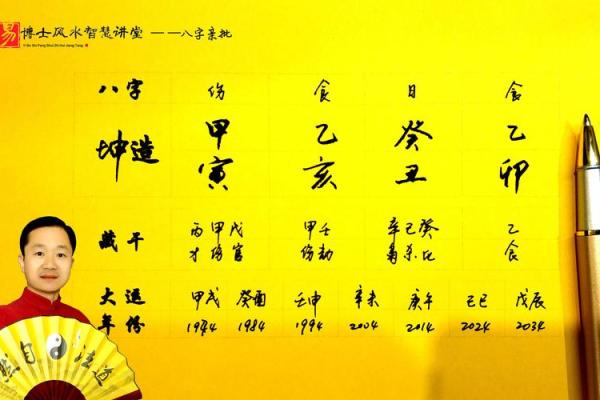 易 博士风水智慧讲堂 ——八字亲批
Yi Bo Shi Feng Shui Zhi Hui Jiang Tang
八字 伤 食 日 食
坤造 甲 乙 癸 乙
寅 亥 丑 卯
藏干 丙甲戊 甲壬 辛己癸 乙
才伤官 伤劫 枭杀比 食
大运 甲戌 癸酉 壬申 辛未 庚午 己巳 戊辰
年份 1974 1984 1994 2004 2014 2024 2034
然自 法道